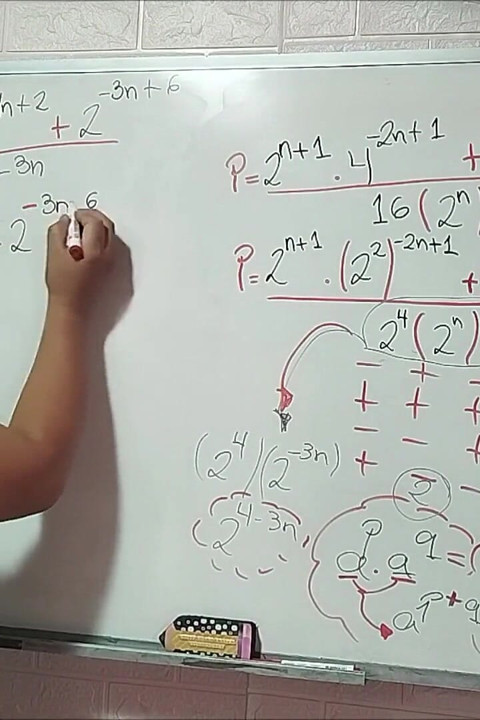 n+2 + 2^{-3n+6}
-3n
2^{-3n 6}
P = 2^{n+1} · 4^{-2n+1} +
16 (2^n)
P = 2^{n+1} · (2^2)^{-2n+1} +
2^4 (2^n)
- +
+ + +
- - +
+ - -
(2^4)(2^{-3n})
2^{4-3n}
2
a^p · a^q = (
a^{p+q}